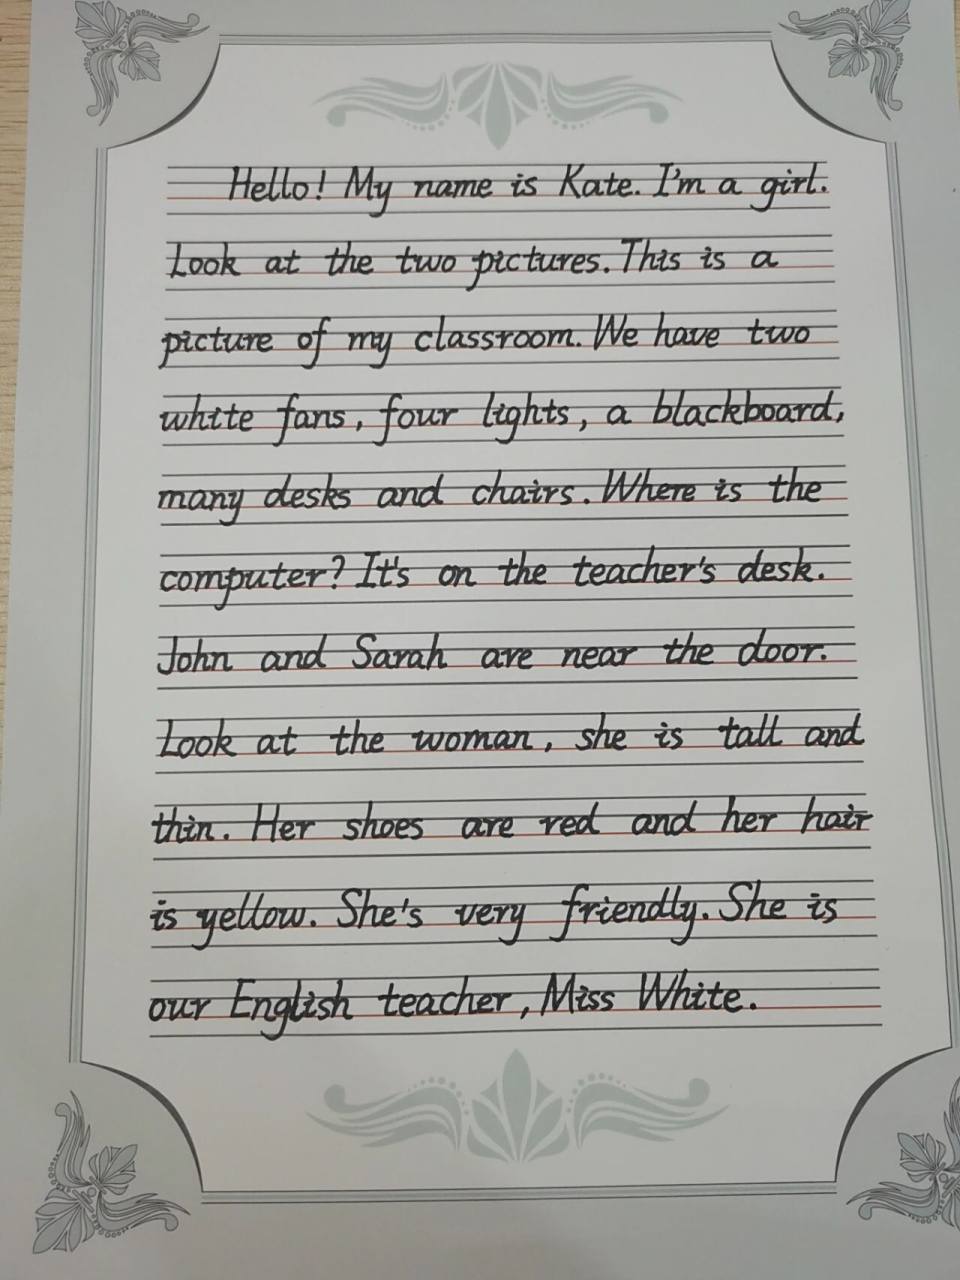 Hello! My name is Kate. I'm a girl.
Look at the two pictures. This is a
picture of my classroom. We have two
white fans, four lights, a blackboard,
many desks and chairs. Where is the
computer? It's on the teacher's desk.
John and Sarah are near the door.
Look at the woman, she is tall and
thin. Her shoes are red and her hair
is yellow. She's very friendly. She is
our English teacher, Miss White.